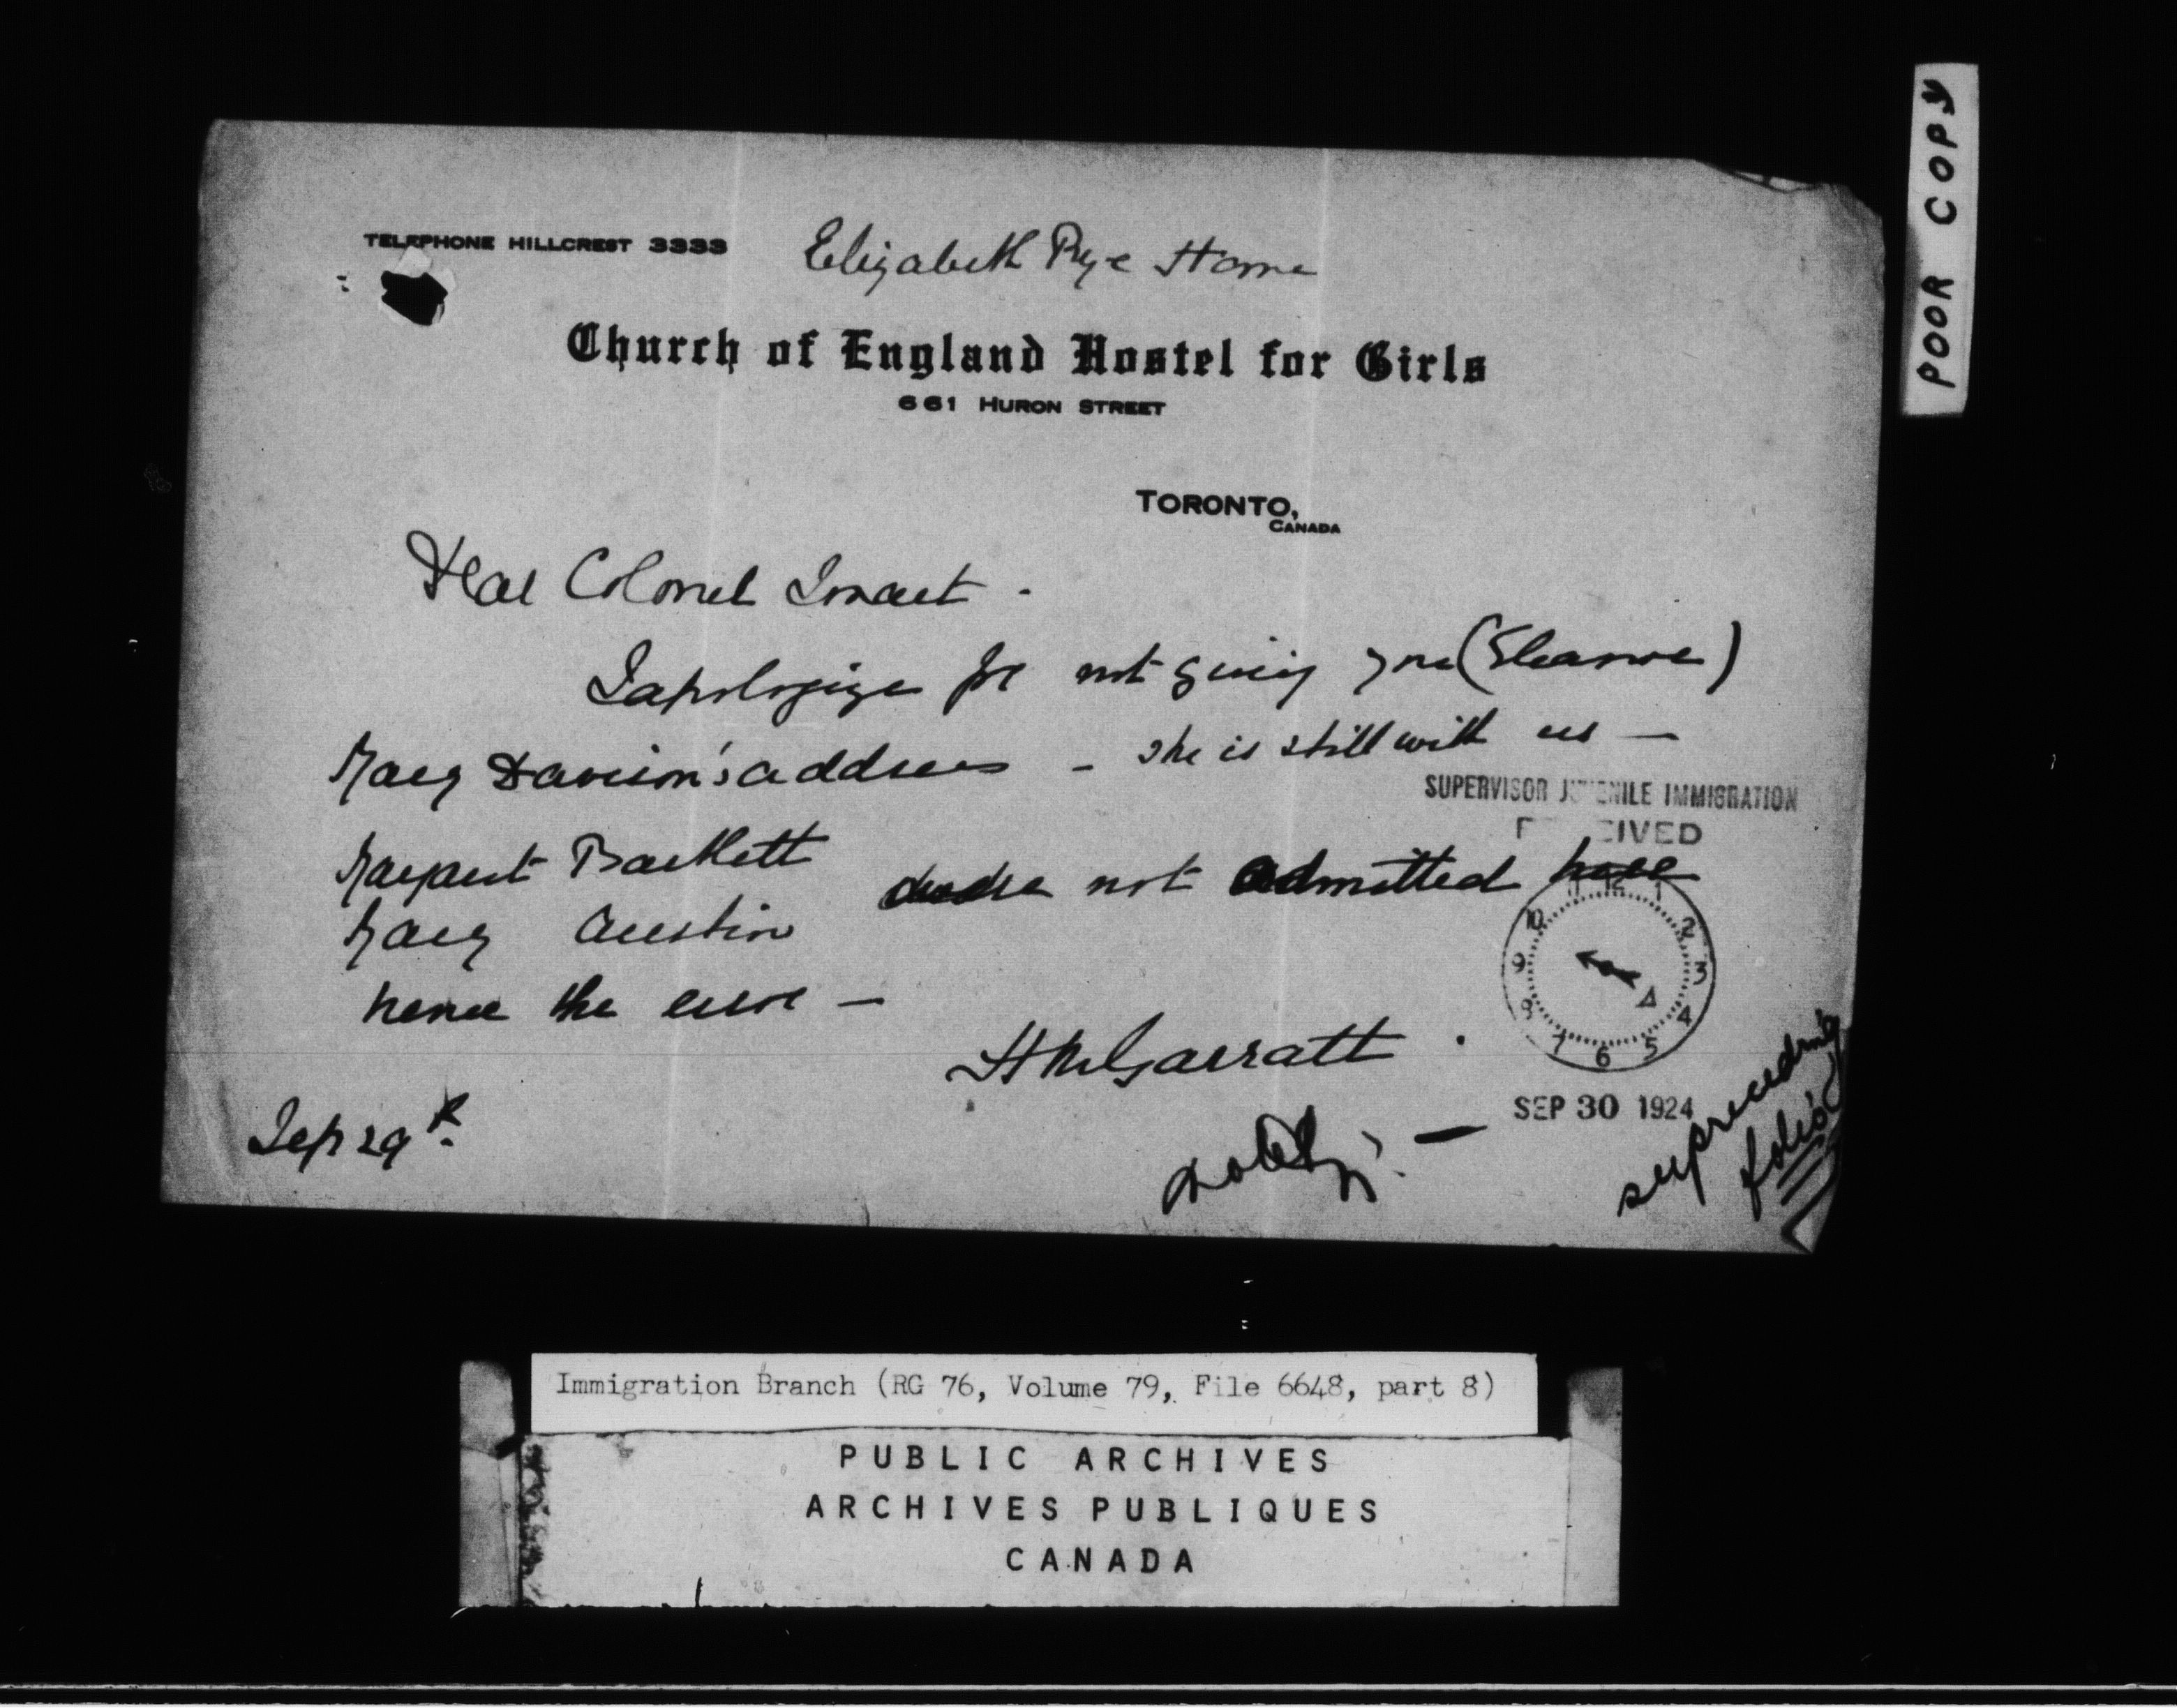 POOR COPY
TELEPHONE HILLCREST 3333
Elizabeth Rye Home
Church of England Hostel for Girls
661 HURON STREET
TORONTO,
CANADA
Dear Colonel Smart .
I apologize for not giving you (Eleanor)
Mary Davison's address - she is still with us —
SUPERVISOR JUVENILE IMMIGRATION
RECEIVED
Margaret Bartlett
not admitted here
Mary Austin
hence the error —
11 12 1 2 3 4 5 6 7 8 9 10
H M Garratt .
SEP 30 1924
Sep 29th
see preceding
folios
Immigration Branch (RG 76, Volume 79, File 6648, part 8)
PUBLIC ARCHIVES
ARCHIVES PUBLIQUES
CANADA